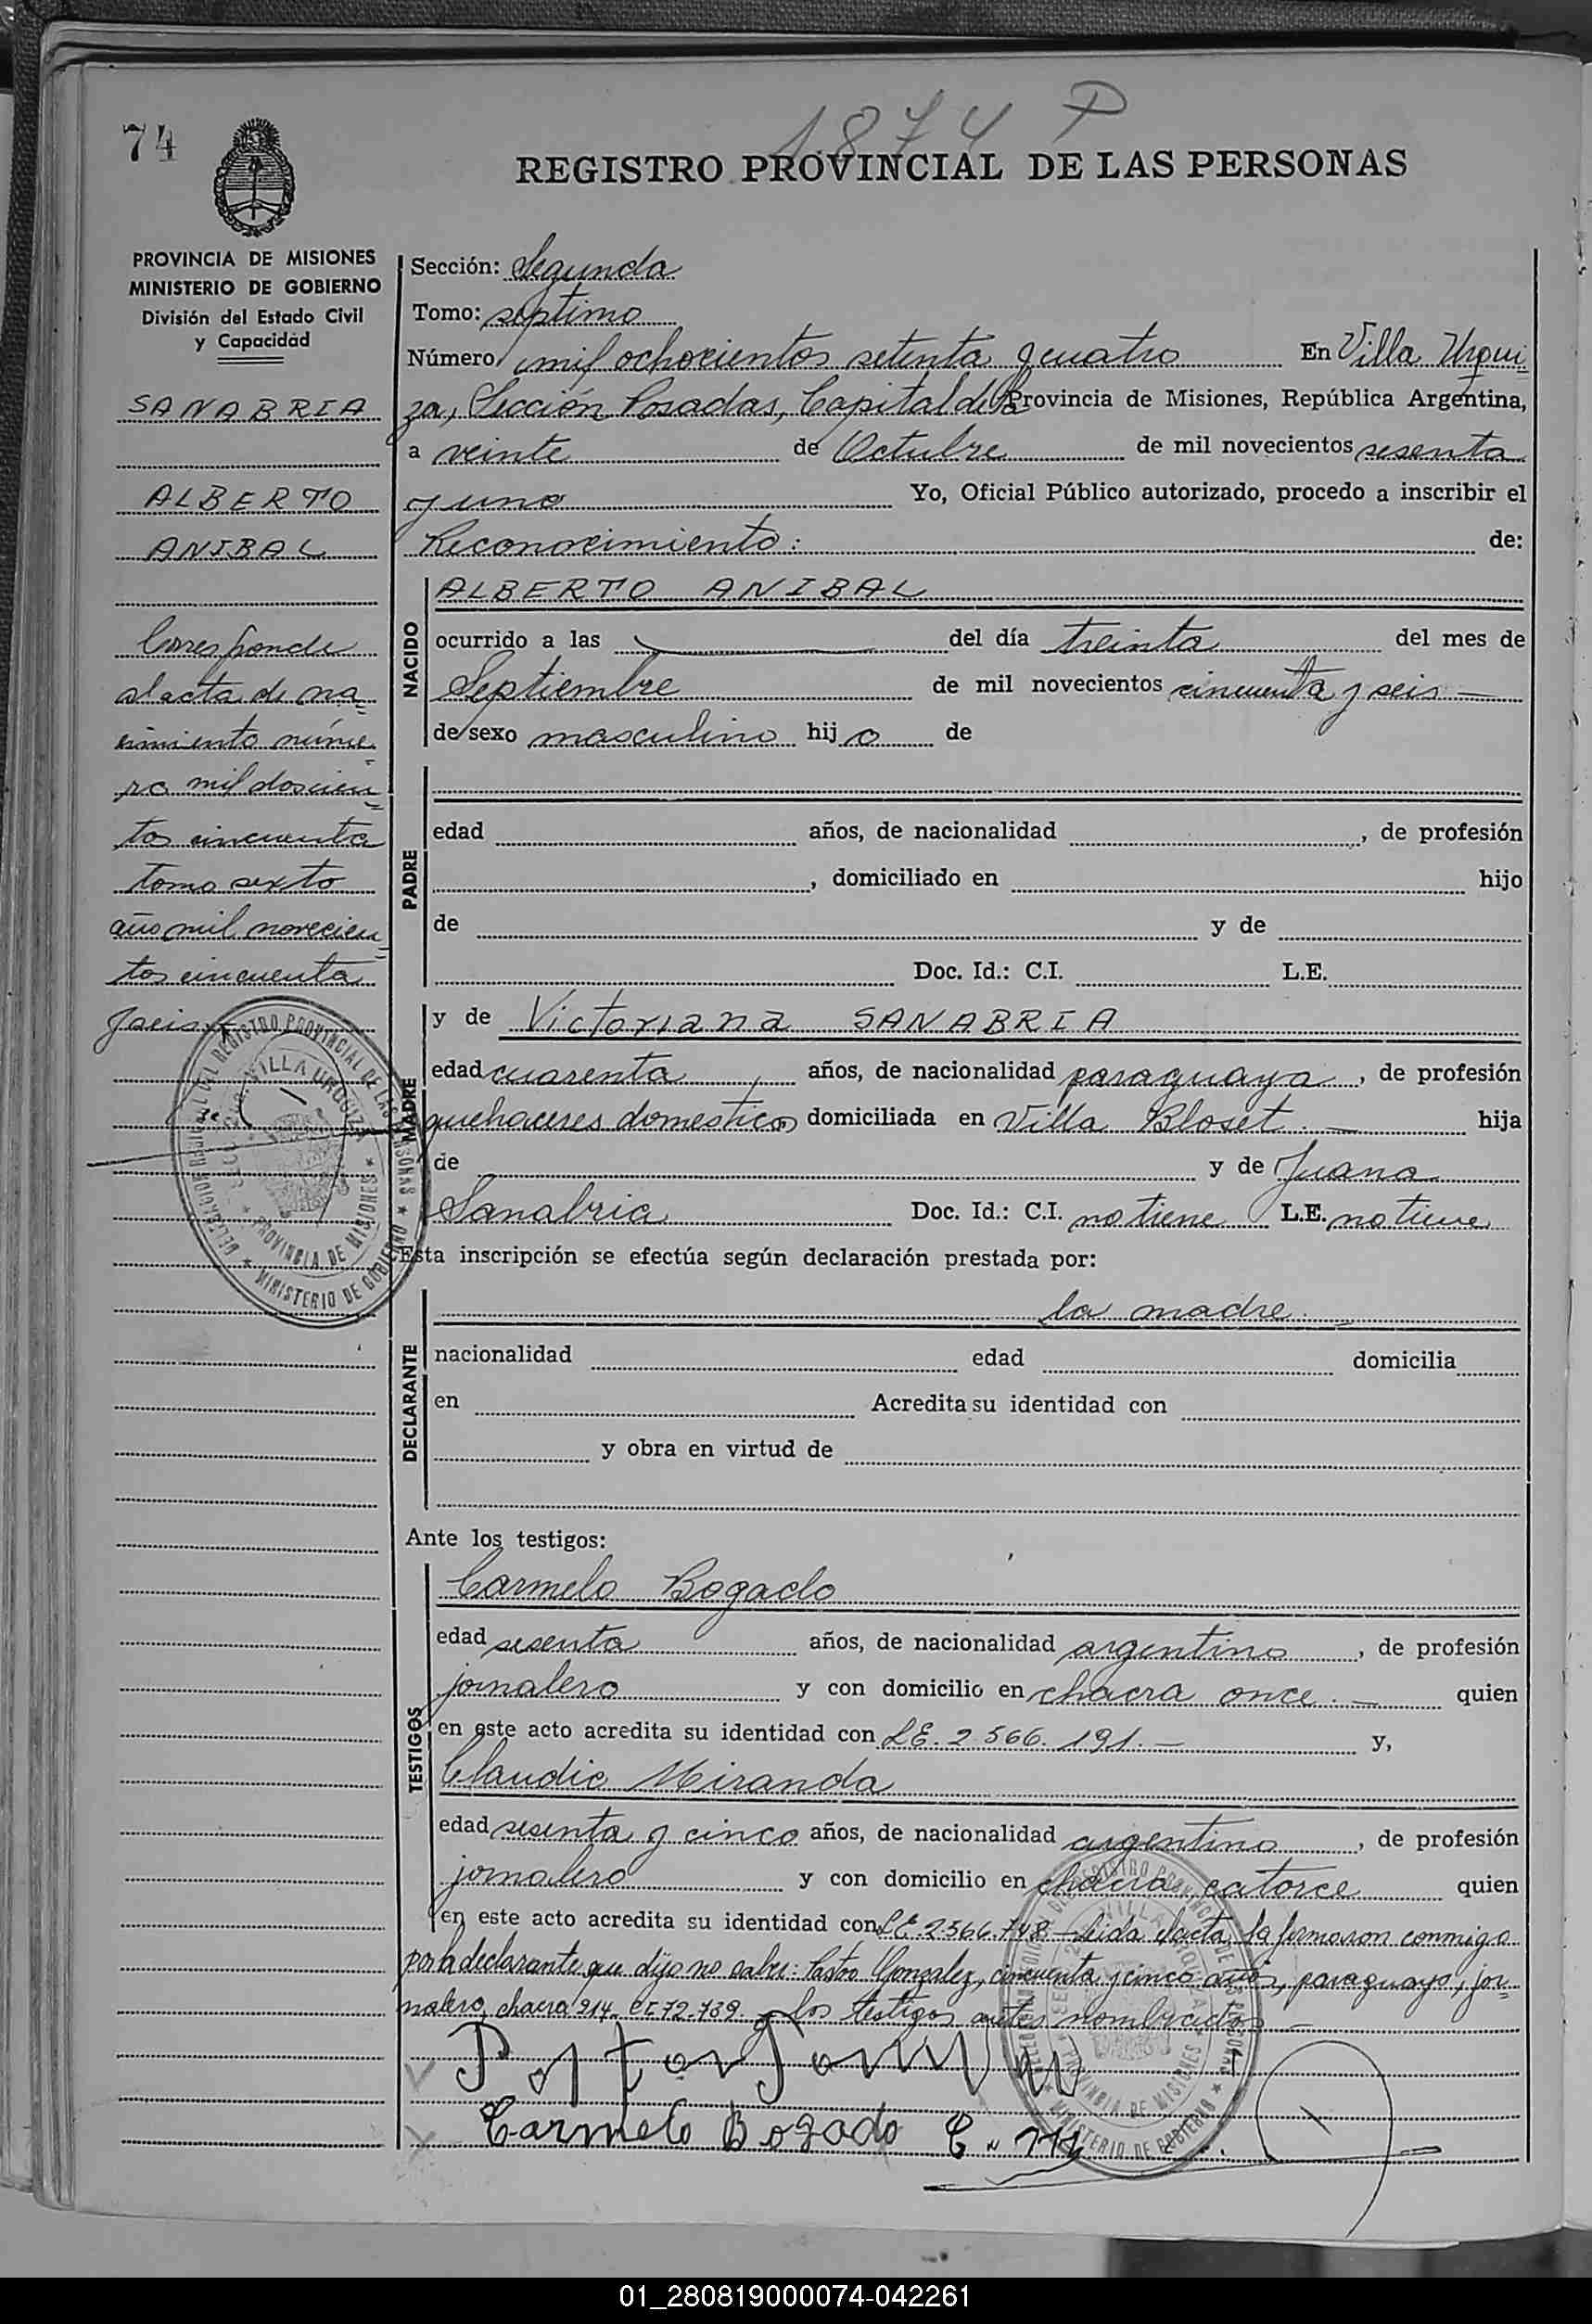 74
1874 P
REGISTRO PROVINCIAL DE LAS PERSONAS
PROVINCIA DE MISIONES
MINISTERIO DE GOBIERNO
División del Estado Civil
y Capacidad
SANABRIA
ALBERTO
ANIBAL
Corresponde
al acta de na=
cimiento núme=
ro mil doscien=
tos cincuenta
tomo sexto
año mil novecien=
tos cincuenta
y seis.
Sección: Segunda
Tomo: septimo
Número mil ochocientos setenta y cuatro En Villa Urqui=
za, Sección Posadas, Capital de la Provincia de Misiones, República Argentina,
a veinte de Octubre de mil novecientos sesenta
y uno Yo, Oficial Público autorizado, procedo a inscribir el
Reconocimiento: de:
NACIDO
ALBERTO ANIBAL
ocurrido a las del día treinta del mes de
Septiembre de mil novecientos cincuenta y seis —
de sexo masculino hijo de
PADRE
edad años, de nacionalidad , de profesión
, domiciliado en hijo
de y de
Doc. Id.: C.I. L.E.
MADRE
y de Victoriana SANABRIA
edad cuarenta años, de nacionalidad paraguaya, de profesión
quehaceres domesticos domiciliada en Villa Bloset. — hija
de y de Juana
Sanabria Doc. Id.: C.I. no tiene L.E. no tiene
Esta inscripción se efectúa según declaración prestada por:
DECLARANTE
la madre.
nacionalidad edad domicilia
en Acredita su identidad con
y obra en virtud de
Ante los testigos:
TESTIGOS
Carmelo Bogado
edad sesenta años, de nacionalidad argentino, de profesión
jornalero y con domicilio en chacra once. — quien
en este acto acredita su identidad con LE. 2.566.191. — y,
Claudio Miranda
edad sesenta y cinco años, de nacionalidad argentino, de profesión
jornalero y con domicilio en chacra catorce quien
en este acto acredita su identidad con LE. 2.566.748 — Leida el acta, la firmaron conmigo
por la declarante que dijo no saber: Pastor Gonzalez, cincuenta y cinco años, paraguayo, jor=
nalero, chacra 214. CI 72.739. y los testigos antes nombrados —
Carmelo Bogado
DELEGACION DEL REGISTRO PROVINCIAL DE LAS PERSONAS
VILLA URQUIZA
PROVINCIA DE MISIONES
MINISTERIO DE GOBIERNO
VILLA URQUIZA
PROVINCIA DE MISIONES
MINISTERIO DE GOBIERNO
01_280819000074-042261